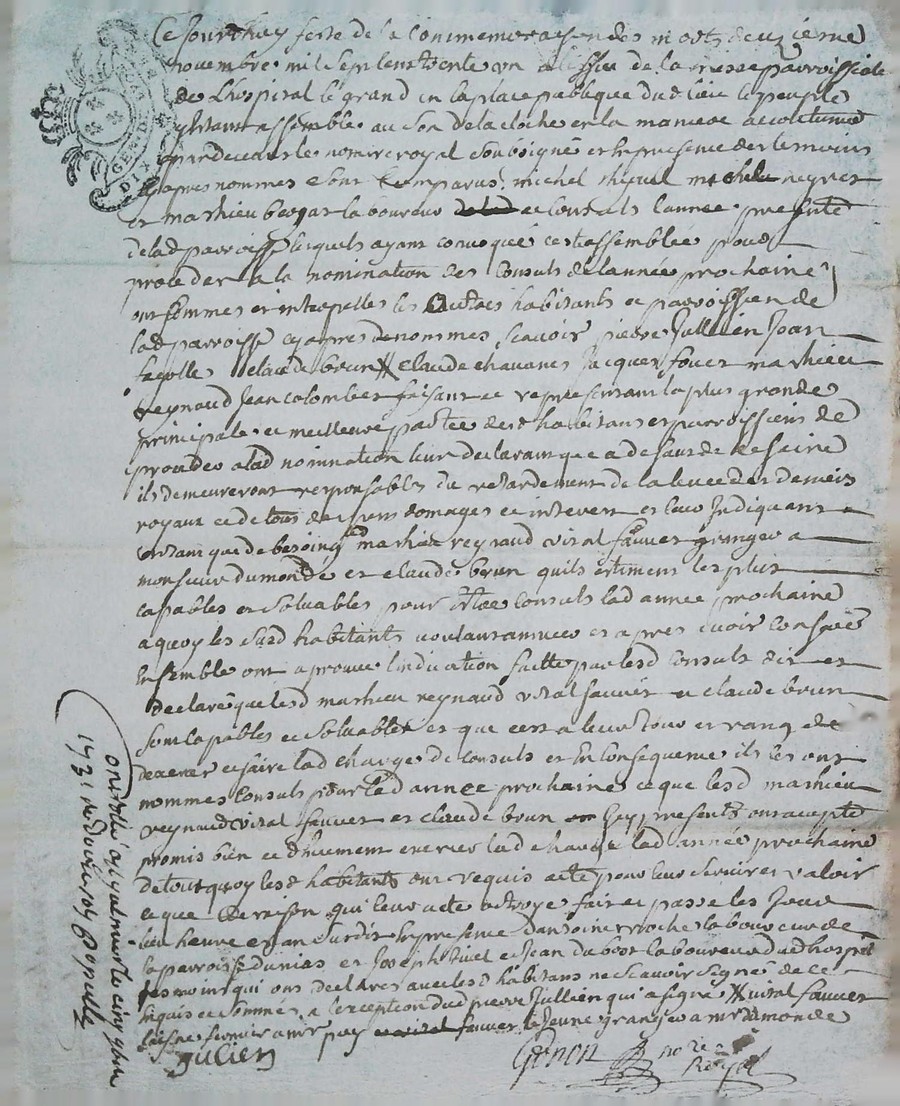 GEN DE
DIX
Ce jourdhuy feste de la Commemoraison des morts deuzieme
novembre mil sept cens trente un a lissue de la messe parroissiale
de Lhospital le grand en la place publique dud lieu le peuple
assemble au son de la cloche en la maniere accoutumé
pardevant le notaire royal soubsigne et en presence des temoins
apres nommes sont comparus michel michel negres
et mathieu laboureur et Consuls lannee presente
de lad parroisse lesquels ayant convoqué cest assemblée pour
proceder a la nomination des Consuls de lannée prochaine
ont sommes et interpelles les autres habitants et parroissien de
lad parroisse cy apres denommes scavoir pierre Jullien Jean
claude brun X claude chavanes Jacques mathieu
reynaud Jean colombet faisant et representant la plus grande
principale et meilleure partie des habitans et parroissiens de
proceder a lad nomination leur declarant que a defaut de ce faire
ils demeureront responsables du retardement de la levee des deniers
royaux et de tous depens domages et interets et leur Indiquant
entant que de besoing mathieu reynaud vital fauver granger a
monsieur dumonde et claude brun quils estiment les plus
capables et solvables pour estre consuls lad annee prochaine
a quoy les susd habitants et apres avoir conferé
ensemble ont aprouvé lindication faitte par lesd Consuls dit et
declaré que lesd mathieu reynaud vital fauver et claude brun
sont capables et solvables et que cest a leur tour et rang de
exercer et faire lad charge de consuls et en consequence ils les ont
nommes Consuls pour lad annee prochaine et que lesd mathieu
reynaud vital fauver et claude brun icy presents ont accepté
promis bien et dhuement exercer lad charge lad année prochaine
de tout quoy lesd habitants ont requis acte pour leur servir et valoir
ce que de raison qui leur a été octroyé fait et passe les jour
lieu heure et an susdits en presence dantoine roche laboureur de
la parroisse dunias et Joseph et Jean dubost laboureur dud hospital
tesmoins qui ont declaré avec lesd habitans ne scavoir signer de ce
enquis et sommés a lexception dud pierre Jullien qui a signé X vital fauver
fermier a mr fauver le Jeune granger a mr dumonde
julien
Genon no re
Royal
Controllé a le cinq 9bre
1731